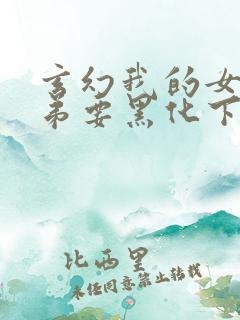 玄幻我的女
弟要黑化下
比西里
未经同意禁止转载